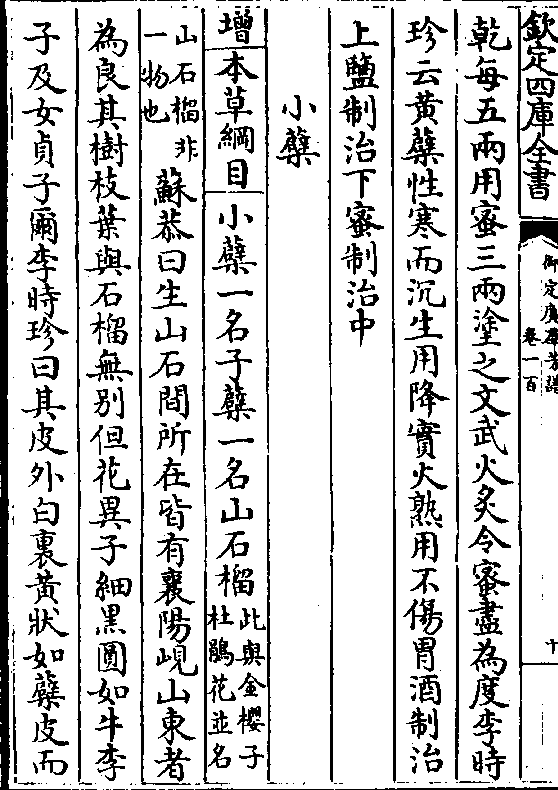 欽定四庫全書
御定廣羣芳譜
卷一百
十
乾每五兩用蜜三兩塗之文武火炙令蜜盡為度李時
珍云黃蘗性寒而沉生用降實火熟用不傷胃酒制治
上鹽制治下蜜制治中
小蘗
增本草綱目小蘗一名子蘗一名山石榴此與金櫻子杜鵑花並名
山石榴非一物也蘇恭曰生山石間所在皆有襄陽峴山東者
為良其樹枝葉與石榴無別但花異子細黑圓如牛李
子及女貞子爾李時珍曰其皮外白裏黃狀如蘗皮而